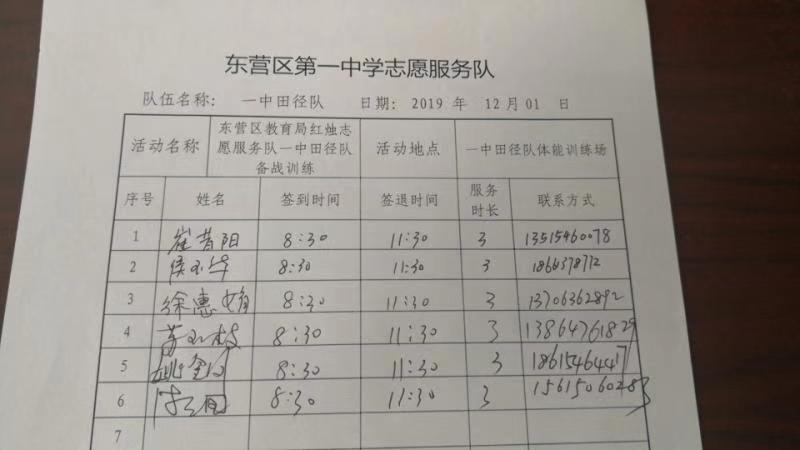 东营区第一中学志愿服务队
队伍名称： 一中田径队 日期： 2019 年 12月01 日
活动名称 东营区教育局红烛志愿服务队一中田径队备战训练 活动地点 一中田径队体能训练场
序号 姓名 签到时间 签退时间 服务时长 联系方式
1 崔昔阳 8:30 11:30 3 13515460078
2 8:30 11:30 3
3 徐惠娟 8:30 11:30 3 13706362892
4 8:30 11:30 3 13864761829
5 8:30 11:30 3 18615464417
6 8:30 11:30 3 15615060283
7